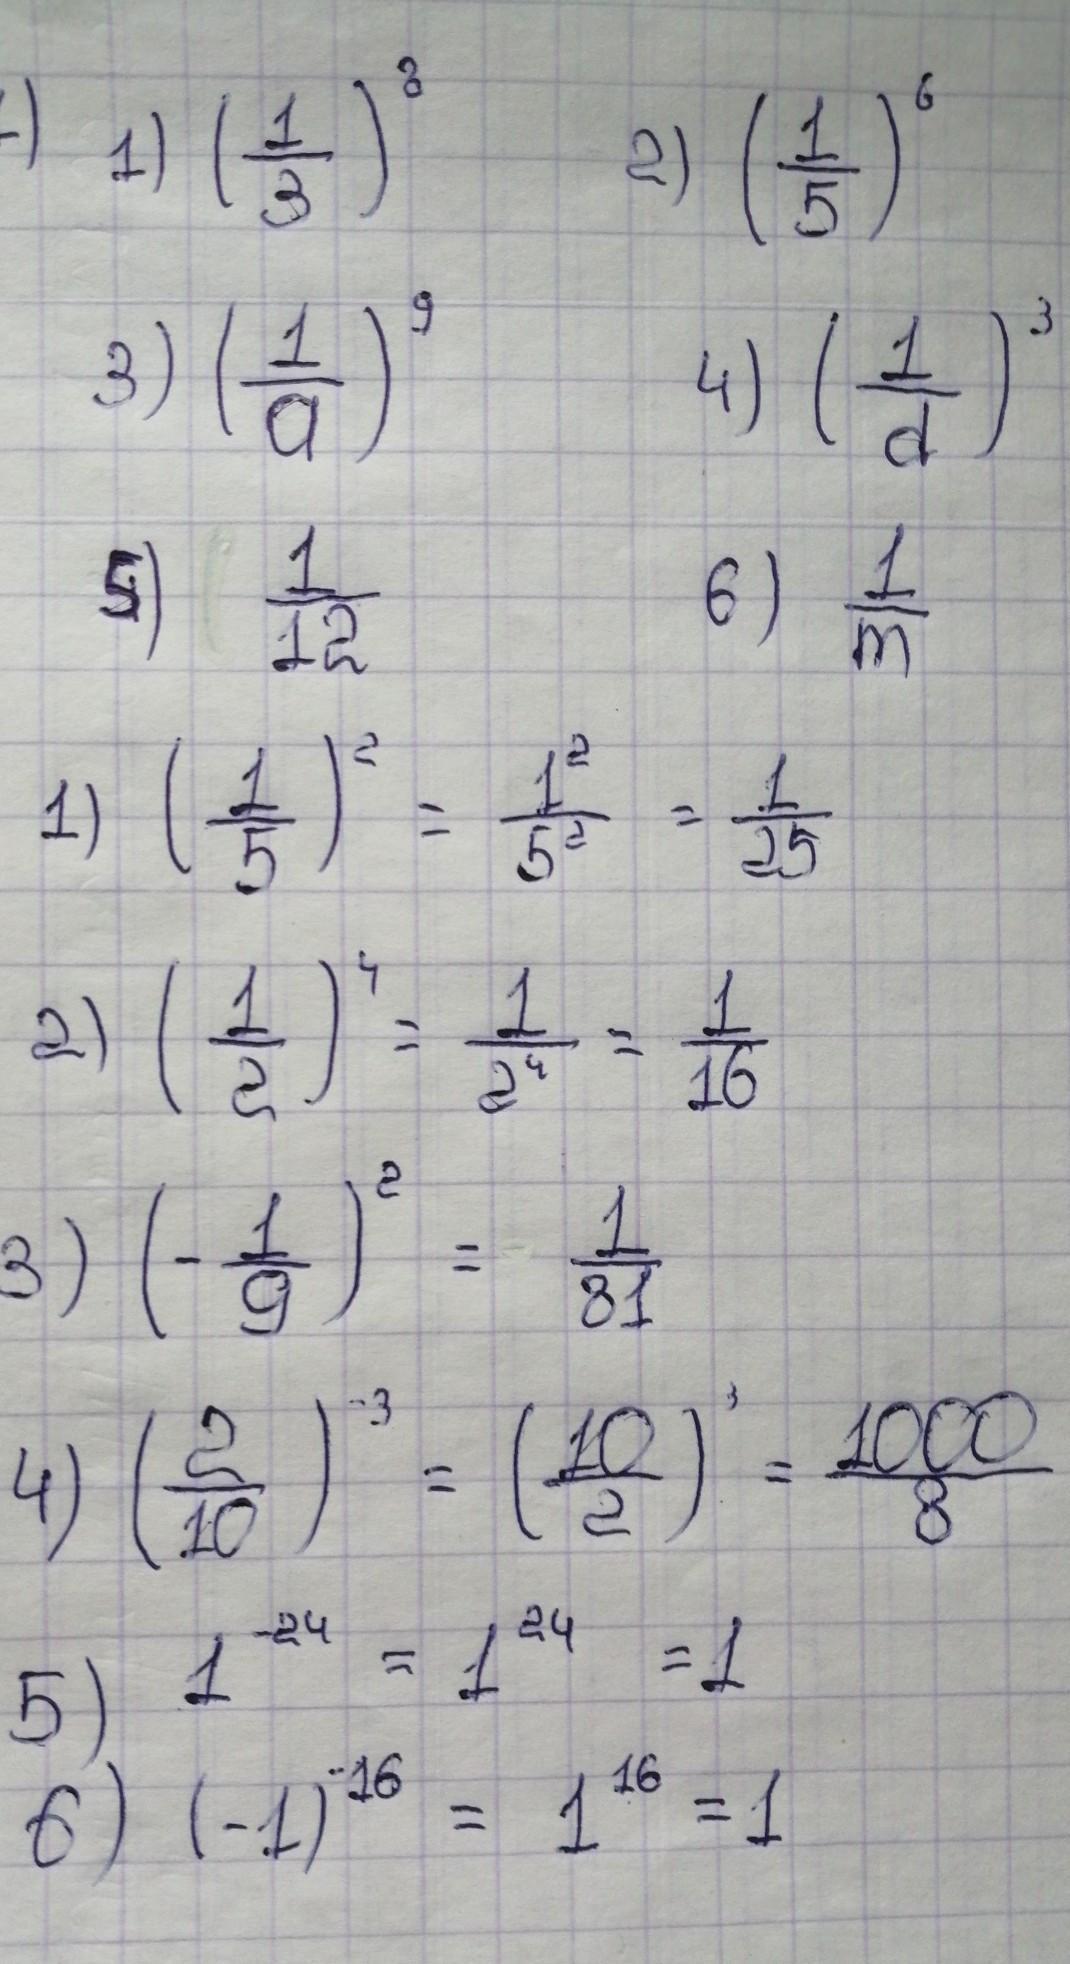 1) (1/3)^8 2) (1/5)^6
3) (1/a)^9 4) (1/d)^3
5) 1/12 6) 1/m
1) (1/5)^2 = 1^2/5^2 = 1/25
2) (1/2)^4 = 1/2^4 = 1/16
3) (-1/9)^2 = 1/81
4) (2/10)^-3 = (10/2)^3 = 1000/8
5) 1^-24 = 1^24 = 1
6) (-1)^-16 = 1^16 = 1